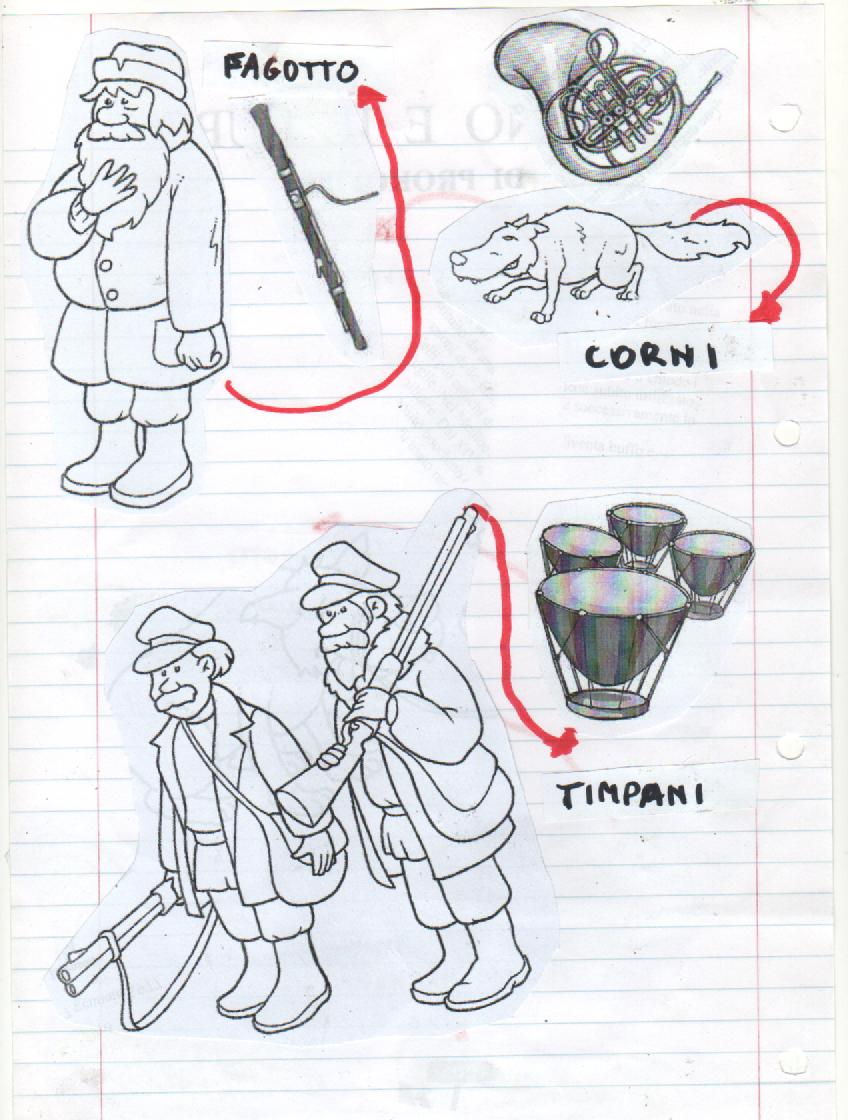 FAGOTTO
CORNI
TIMPANI